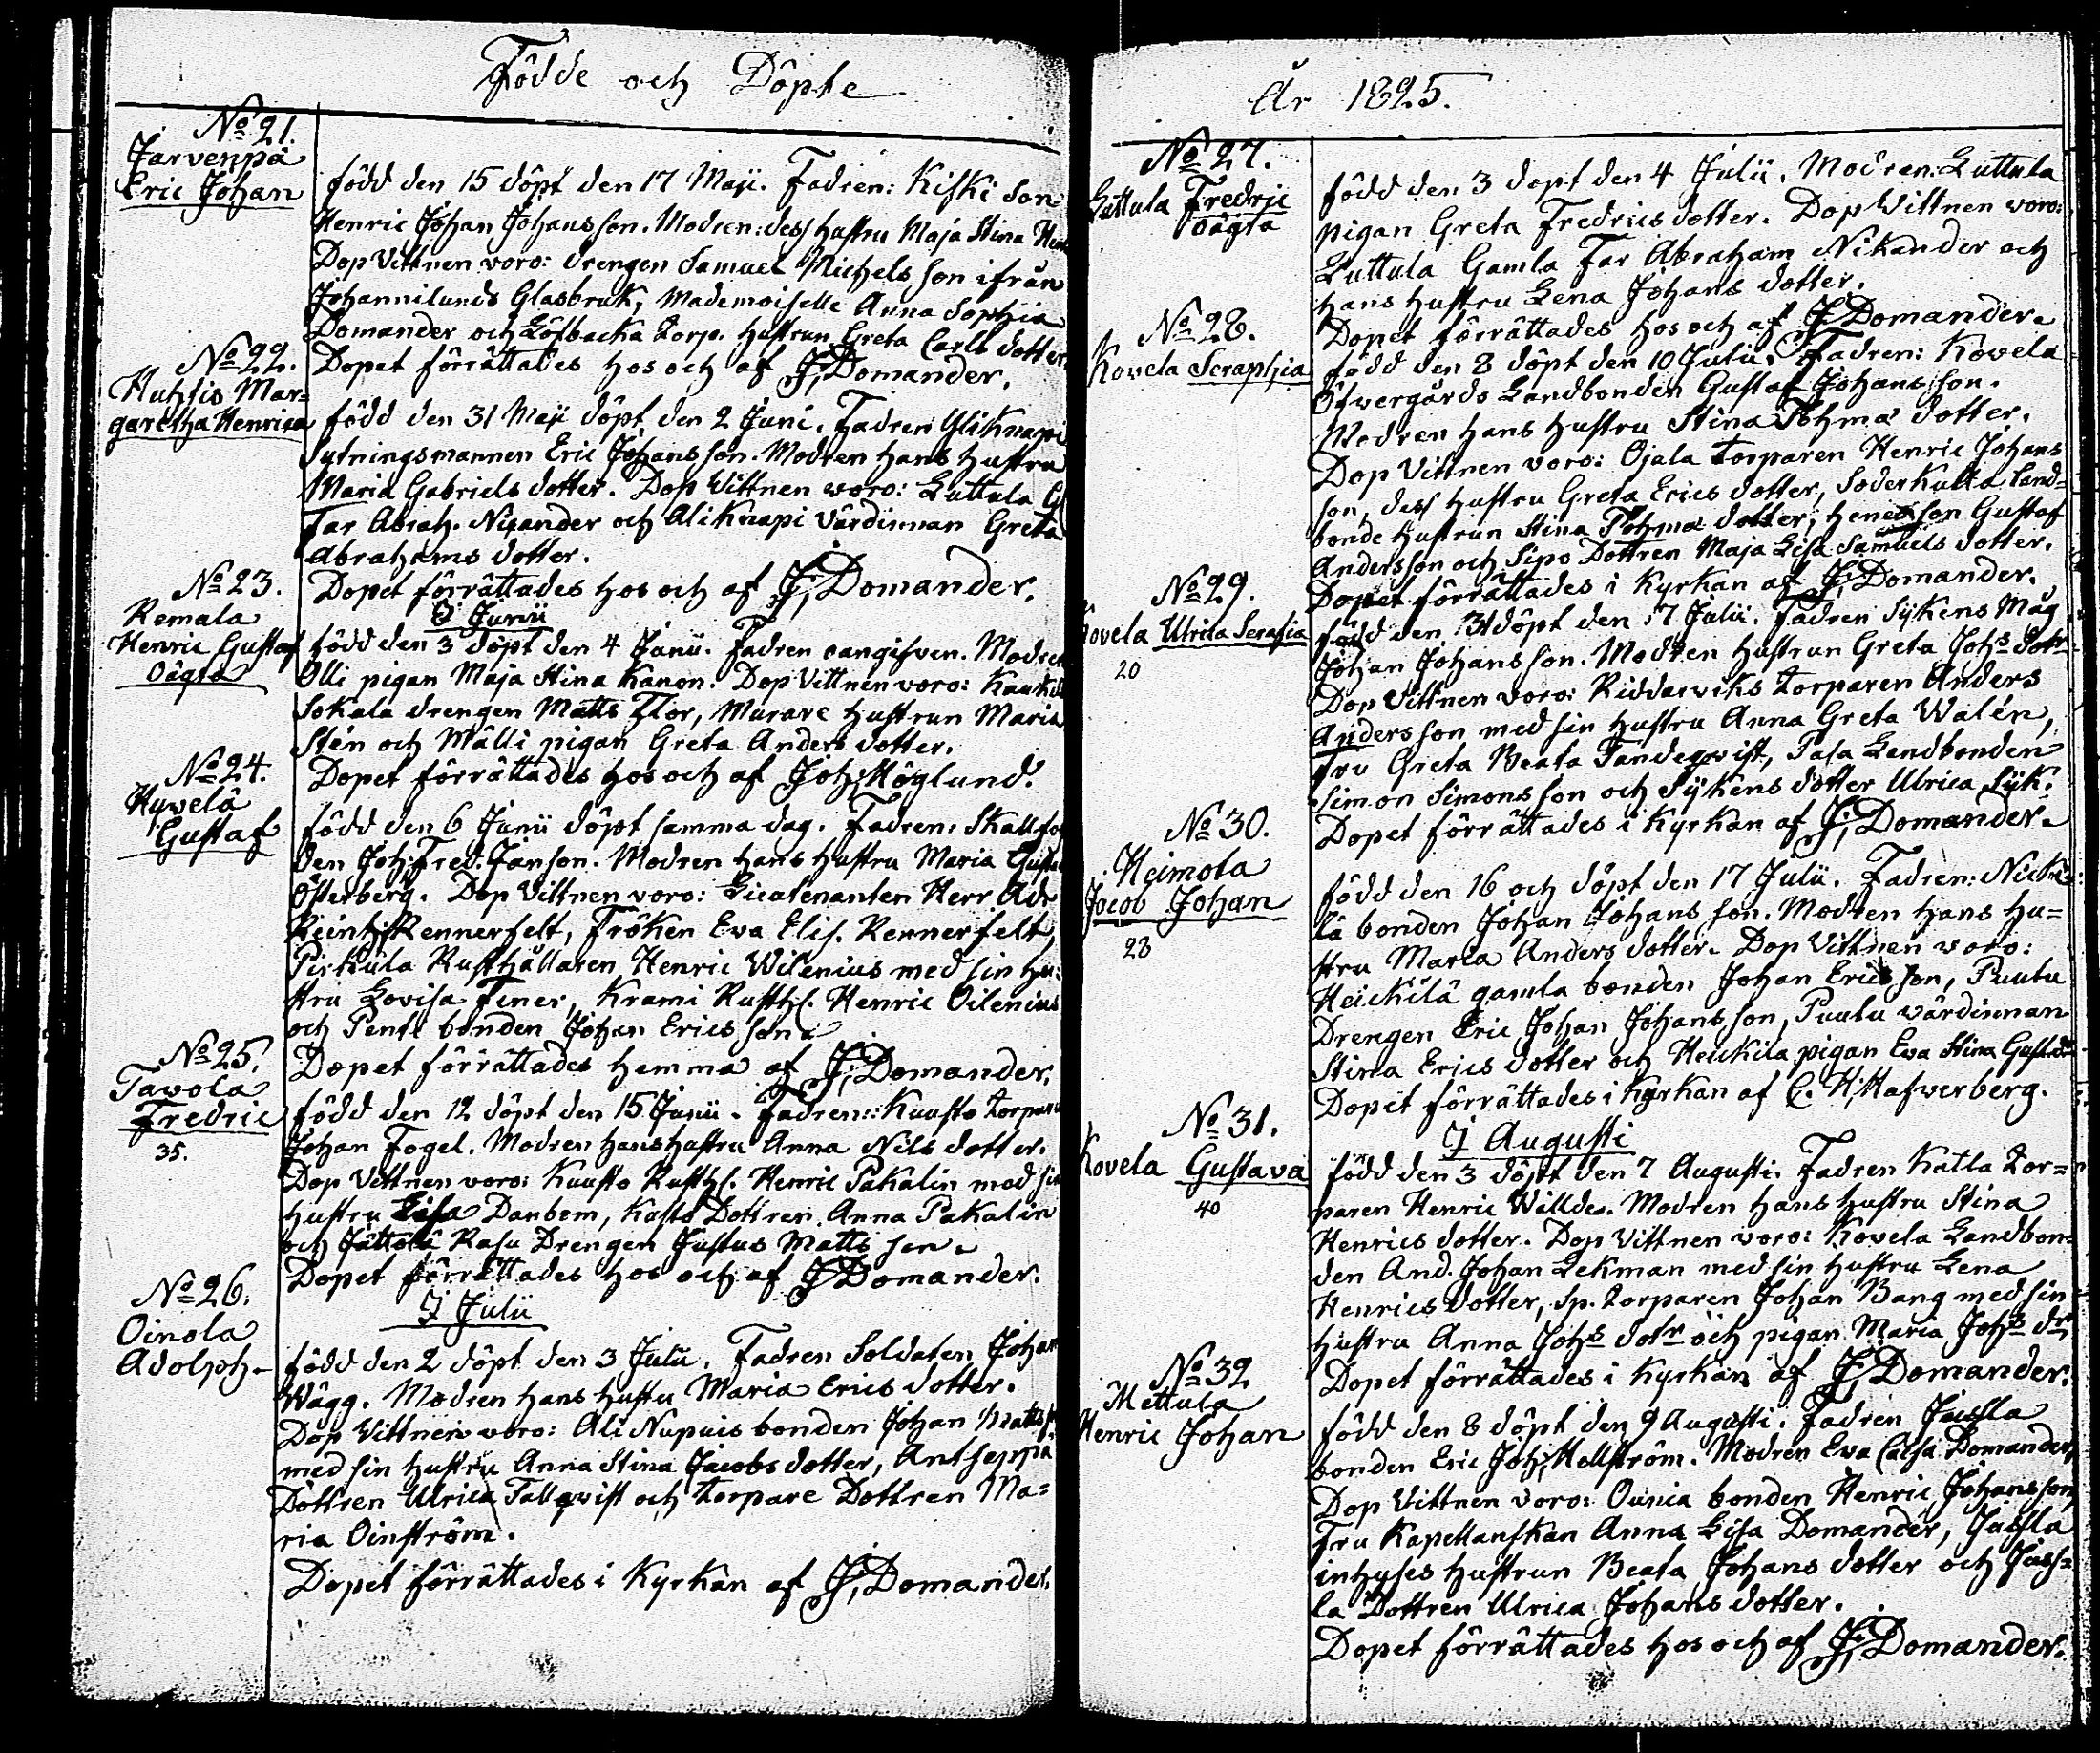 Födde och Döpte
No 21.
Jarvenpä
Eric Johan
född den 15 döpt den 17 Maji. Fadren: Kiski Son
Henric Johan Johansson. Modren: dess hustru Maja Stina
Dop Vittnen voro: drengen Samuel Michels son ifrån
Johannilunds Glasbruk, Mademoiselle Anna Sophia
Domander och Löfbacka Torp. hustrun Greta Carls dotter
Dopet förrättades hos och af J. Domander.
No 22.
Huhsis Mar=
garetha Henrica
född den 31 Maji döpt den 2 Juni. Fadren Yliknapi
Sytningsmannen Eric Johansson. Modren hans hustru
Maria Gabriels dotter. Dop Vittnen voro: Luttula
Far Abrah. Nicander och Aliknapi Värdinnan Greta
Abrahams dotter.
Dopet förrättades hos och af J. Domander.
I Junii
No 23.
Remala
Henric Gustaf
Oägta
född den 3 döpt den 4 Junii. Fadren oangifven. Modren
Olli pigan Maja Stina Kanon. Dop Vittnen voro:
Sokala drengen Matts Flor, Murare hustrun Maria
Stén och Mälli pigan Greta Anders dotter.
Dopet förrättades hos och af Joh. Höglund.
No 24.
Hyvelä
Gustaf
född den 6 Junii döpt samma dag. Fadren:
den Joh. Fred. Janson. Modren hans hustru Maria
Österberg. Dop Vittnen voro: Lieutenanten Herr Adr
Reinh. Rennerfelt, Fröken Eva Elis. Rennerfelt,
Pirkula Rusthållaren Henric Wilenius med sin hu=
stru Lovisa Finer, Krami Rusth. Henric Oilenius
och Pentti bonden Johan Ericsson.
Dopet förrättades hemma af J. Domander.
No 25.
Tavola
Fredric
35.
född den 12 döpt den 15 Junii. Fadren: Kuusto torparen
Johan Fogel. Modren hans hustru Anna Nils dotter.
Dop Vittnen voro: Kuusto Rusth. Henric Pakalin med sin
hustru Lisa Danbom, Kusto Dottren Anna Pakalin
och Jättölä Rasu Drengen Justus Matts son.
Dopet förrättades hos och af J. Domander.
I Julii
No 26.
Oinola
Adolph
född den 2 döpt den 3 Julii. Fadren Soldaten Johan
Wägg. Modren hans hustru Maria Erics dotter.
Dop Vittnen voro: Ali Nupuis bonden Johan Mattss
med sin hustru Anna Stina Jacobs dotter, Antseppä
Dottren Ulrica Tallqvist och torpare Dottren Ma=
ria Oinström.
Dopet förrättades i Kyrkan af J. Domander.
År 1825.
No 27.
Luttula Fredric
oägta
född den 3 döpt den 4 Julii. Modren: Luttula
pigan Greta Fredrics dotter. Dop Wittnen voro:
Luttula Gamla Far Abraham Nikander och
hans hustru Lena Johans dotter.
Dopet förrättades hos och af J. Domander.
No 28.
Kovela Seraphia
född den 8 döpt den 10 Julii. Fadren: Kovela
Öfvergårds Landbonden Gustaf Johansson.
Modren hans hustru Stina Tohma dotter.
Dop Vittnen voro: Ojala torparen Henric Johans
son, dess hustru Greta Erics dotter, Söderkulla Land=
bonde hustrun Stina Tohma dotter, Gustaf
Andersson och Sipo Dottren Maja Lisa Samuels dotter.
Dopet förrättades i Kyrkan af J. Domander.
No 29.
Kovela Ulrica Serafia
20
född den 13 döpt den 17 Julii. Fadren Sykens Måg
Johan Johansson. Modren hustrun Greta Johs dotr
Dop Vittnen voro: Riddarviks torparen Anders
Andersson med sin hustru Anna Greta Walén,
Fru Greta Beata Tandeqvist, Pasa Landbonden
Simon Simonsson och Sykens dotter Ulrica Syk.
Dopet förrättades i Kyrkan af J. Domander.
No 30.
Heimola
Jacob Johan
28
född den 16 och döpt den 17 Julii. Fadren: Nicki=
lä bonden Johan Johans son. Modren hans hu=
stru Maria Anders dotter. Dop Vittnen voro:
Heickilä gamla bonden Johan Ericsson, Puutu
Drengen Eric Johan Johansson, Puutu värdinnan
Stina Erics dotter och Heickilä pigan Eva Stina
Dopet förrättades i Kyrkan af C. H. Hafverberg.
I Augusti
No 31.
Kovela Gustava
40
född den 3 döpt den 7 Augusti. Fadren Katla tor=
paren Henric Willde. Modren hans hustru Stina
Henrics dotter. Dop Vittnen voro: Kovela Landbon=
den And. Johan Lekman med sin hustru Lena
Henrics dotter, Sp. torparen Johan Bang med sin
hustru Anna Johs dotr och pigan Maria Johs dr
Dopet förrättades i Kyrkan af J. Domander.
No 32
Mettula
Henric Johan
född den 8 döpt den 9 Augusti. Fadren Jussla
bonden Eric Joh. Hellström. Modren Eva Caisa Domander
Dop Vittnen voro: Ounia bonden Henric Johansson
Fru Kapellanskan Anna Lisa Domander, Jussla
inhyses hustrun Beata Johans dotter och Juss=
la Dottren Ulrica Johans dotter.
Dopet förrättades hos och af J. Domander.